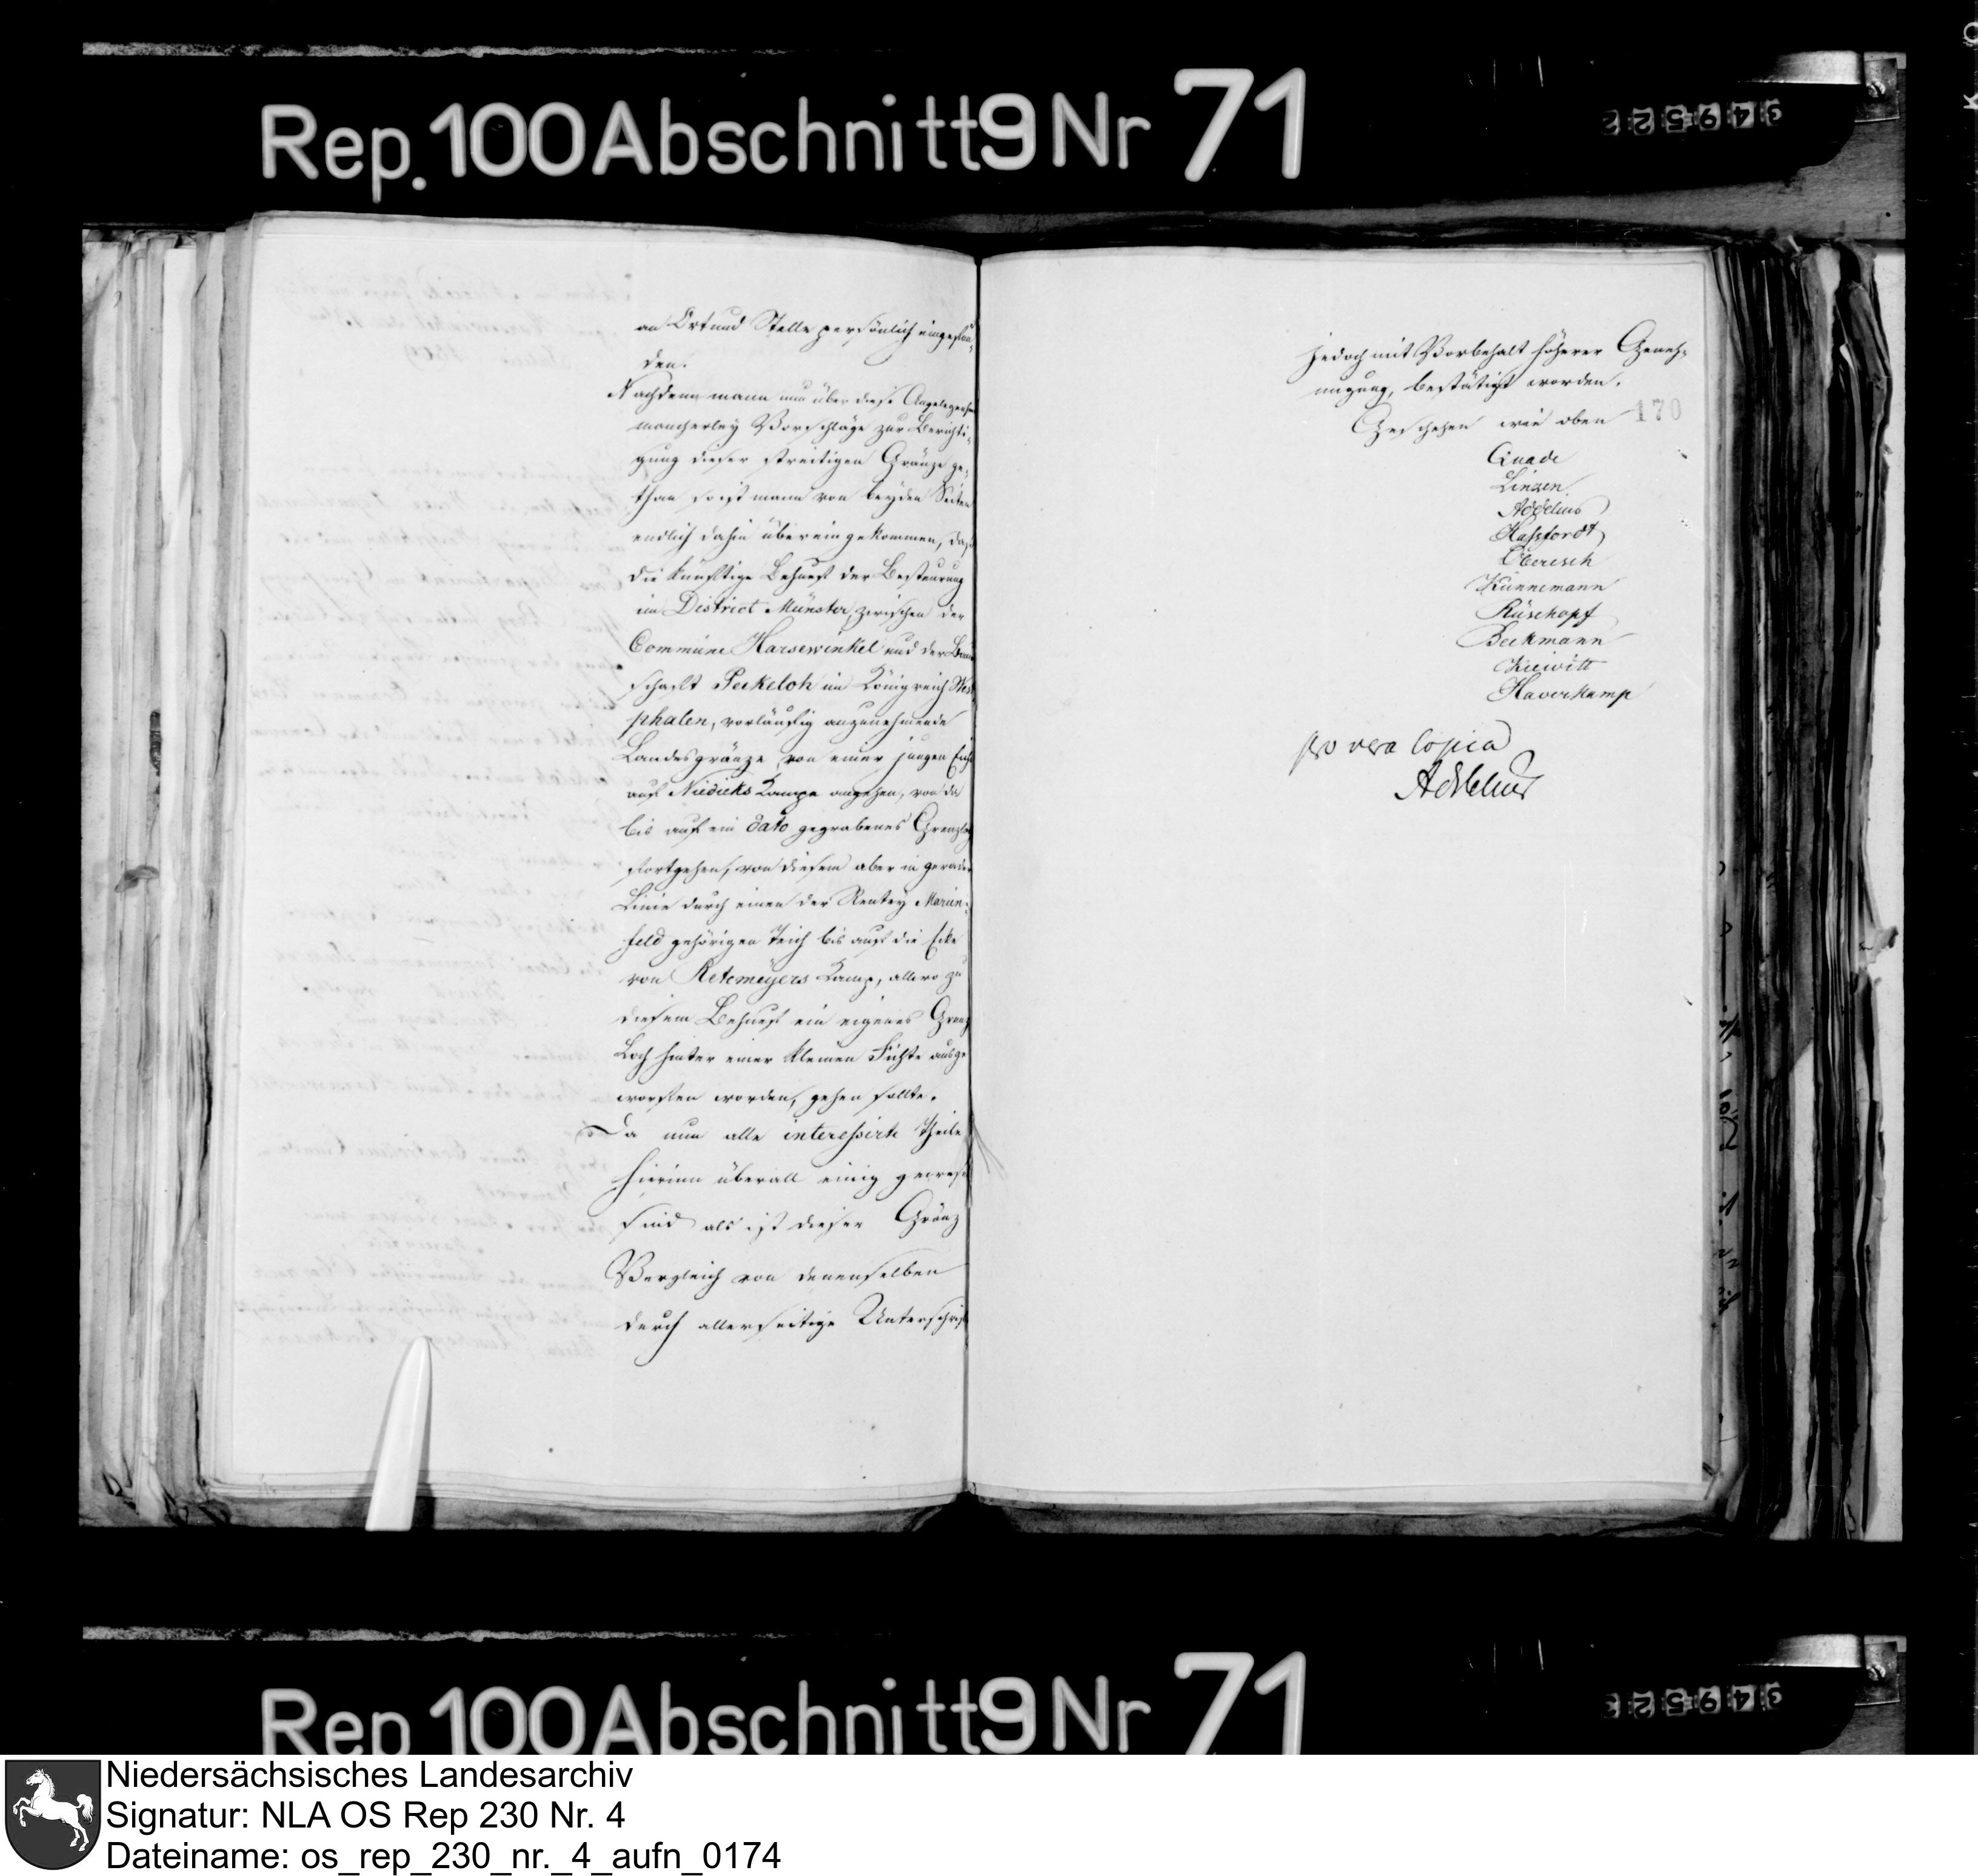 Rep. 100 Abschnitt 9 Nr 71
349522
an Ort und Stelle persönlich eingefun-
den.
Nachdem mann nun über diese Angelegenheit
mancherley Vorschläge zur Berichti-
gung dieser streitigen Gränze ge-
than so ist mann von beyden Seiten
endlich dahin übereingekommen, daß
die künftige Behuef der Besteurung
im District Münster, zwischen der
Commune Harsewinkel und der Bau
schaft Peckeloh im Königreich West
phalen, vorläufig anzunehmende
Landesgränze von einer jungen Eiche
auf Niedieks Kampe angehen, von da
bis auf ein dato gegrabenes Grenzloch
fortgehen, von diesem aber in gerader
Linie durch einen der Rentey Marien-
feld gehörigen Teich bis auf die Ecke
von Retemeyers Kamp, allwo zu
diesem Behuef ein eigenes Grenz
Loch hinter einer kleinen Fichte ausge
worfen worden, gehen sollte.
Da nun alle interessirte Theile
hierinn überall einig gewesen
sind als ist dieser Gränz
Vergleich von denenselben
durch allerseitige Unterschrift
jedoch mit Vorbehalt höherer Geneh-
migung, bestätigt worden.
170
Geschehen wie oben
Quade
Linzen
Addelius
Hassfordt
Oberesch
Künnemann
Rüschopf
Beckmann
Kiewitt
Haverkamp
pro vera Copia
Addelius
Rep 100 Abschnitt 9 Nr 71
349523
Niedersächsisches Landesarchiv
Signatur: NLA OS Rep 230 Nr. 4
Dateiname: os_rep_230_nr._4_aufn_0174